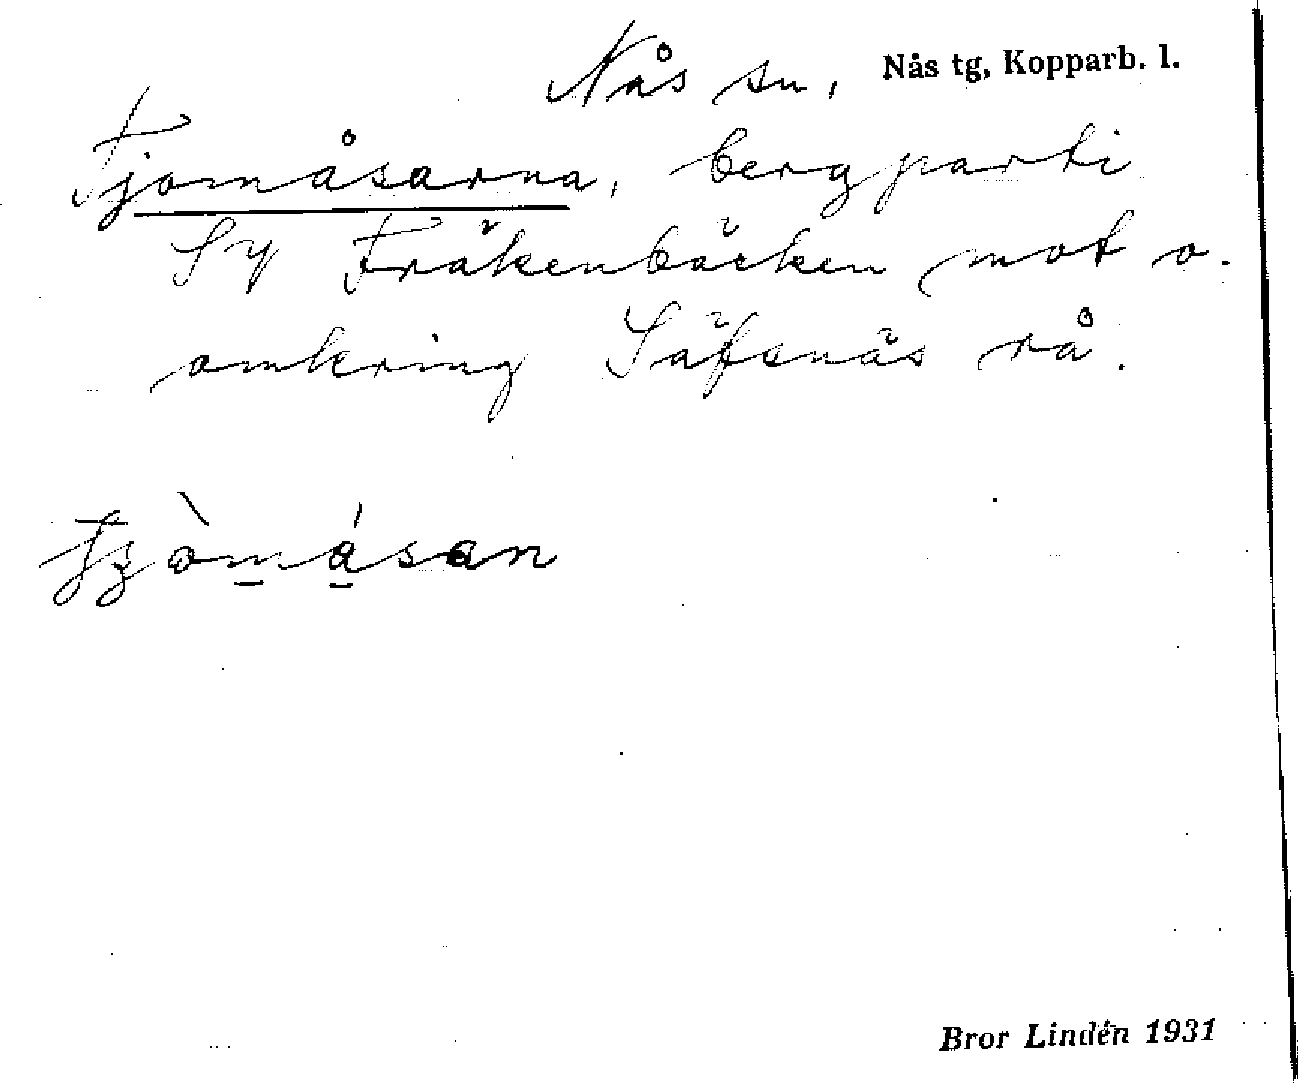 Nås sn, Nås tg, Kopparb. l.
Tjomåsarna, bergparti
SV Fräkenbäcken mot o.
omkring Säfsnäs rå.
Bror Lindén 1931